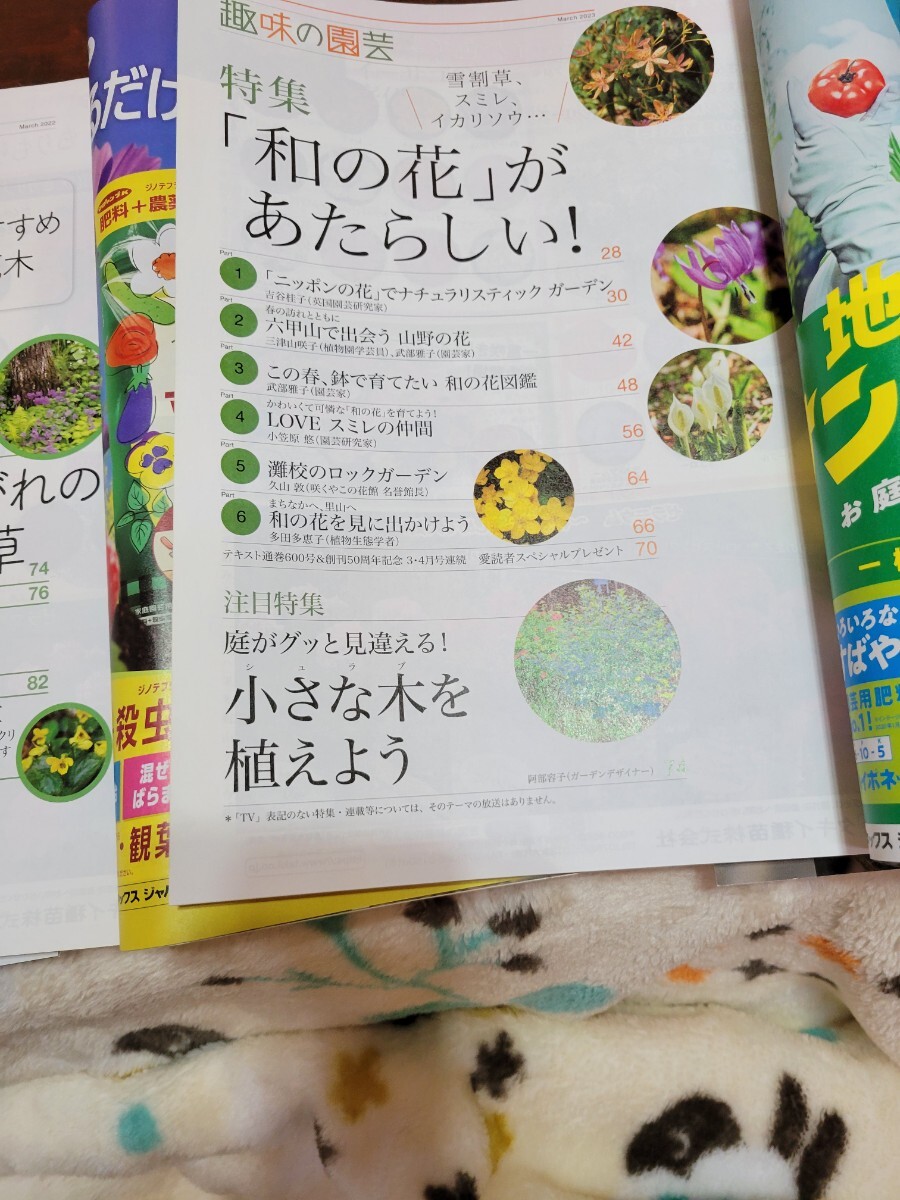 趣味の園芸
March 2023
特集
雪割草、
スミレ、
イカリソウ…
「和の花」が
あたらしい!
28
Part
1
「ニッポンの花」でナチュラリスティック ガーデン
30
吉谷桂子(英国園芸研究家)
Part
2
春の訪れとともに
六甲山で出会う 山野の花
42
三津山咲子(植物園学芸員)、武部雅子(園芸家)
Part
3
この春、鉢で育てたい 和の花図鑑
48
武部雅子(園芸家)
Part
4
かわいくて可憐な「和の花」を育てよう!
LOVE スミレの仲間
56
小笠原 悠(園芸研究家)
Part
5
灘校のロックガーデン
64
久山 敦(咲くやこの花館 名誉館長)
Part
6
まちなかへ、里山へ
和の花を見に出かけよう
66
多田多恵子(植物生態学者)
テキスト通巻600号&創刊50周年記念 3・4月号連続 愛読者スペシャルプレゼント
70
注目特集
庭がグッと見違える!
シュラブ
小さな木を
植えよう
阿部容子(ガーデンデザイナー)
*「TV」表記のない特集・連載等については、そのテーマの放送はありません。
March 2022
すめ
木
れの
草
74
76
82
るだけ
肥料+農薬
殺虫
混ぜ
ばらま
・観葉
ックス ジャパ
地
ン
お庭
ろいろな
ばや
芸用肥料
-10-5
イポネッ
ックス ジャ